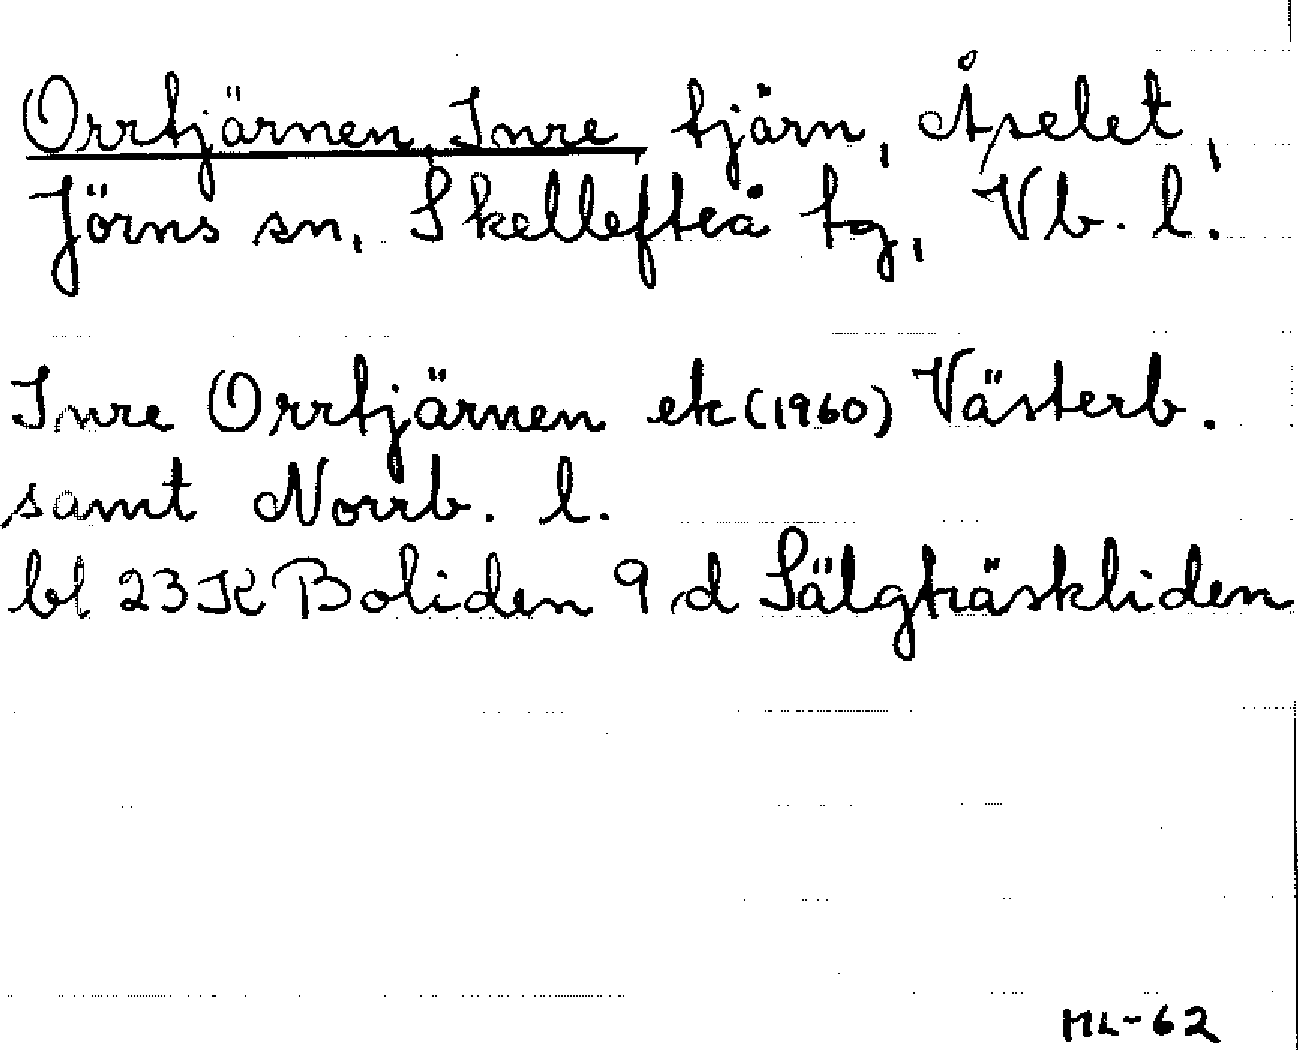 Orrtjärnen, Inre tjärn, Åselet,
Jörns sn, Skellefteå tg, Vb. l.
Inre Orrtjärnen ek (1960) Västerb.
samt Norrb. l.
bl 23 K Boliden 9 d Sälgträskliden
ML-62